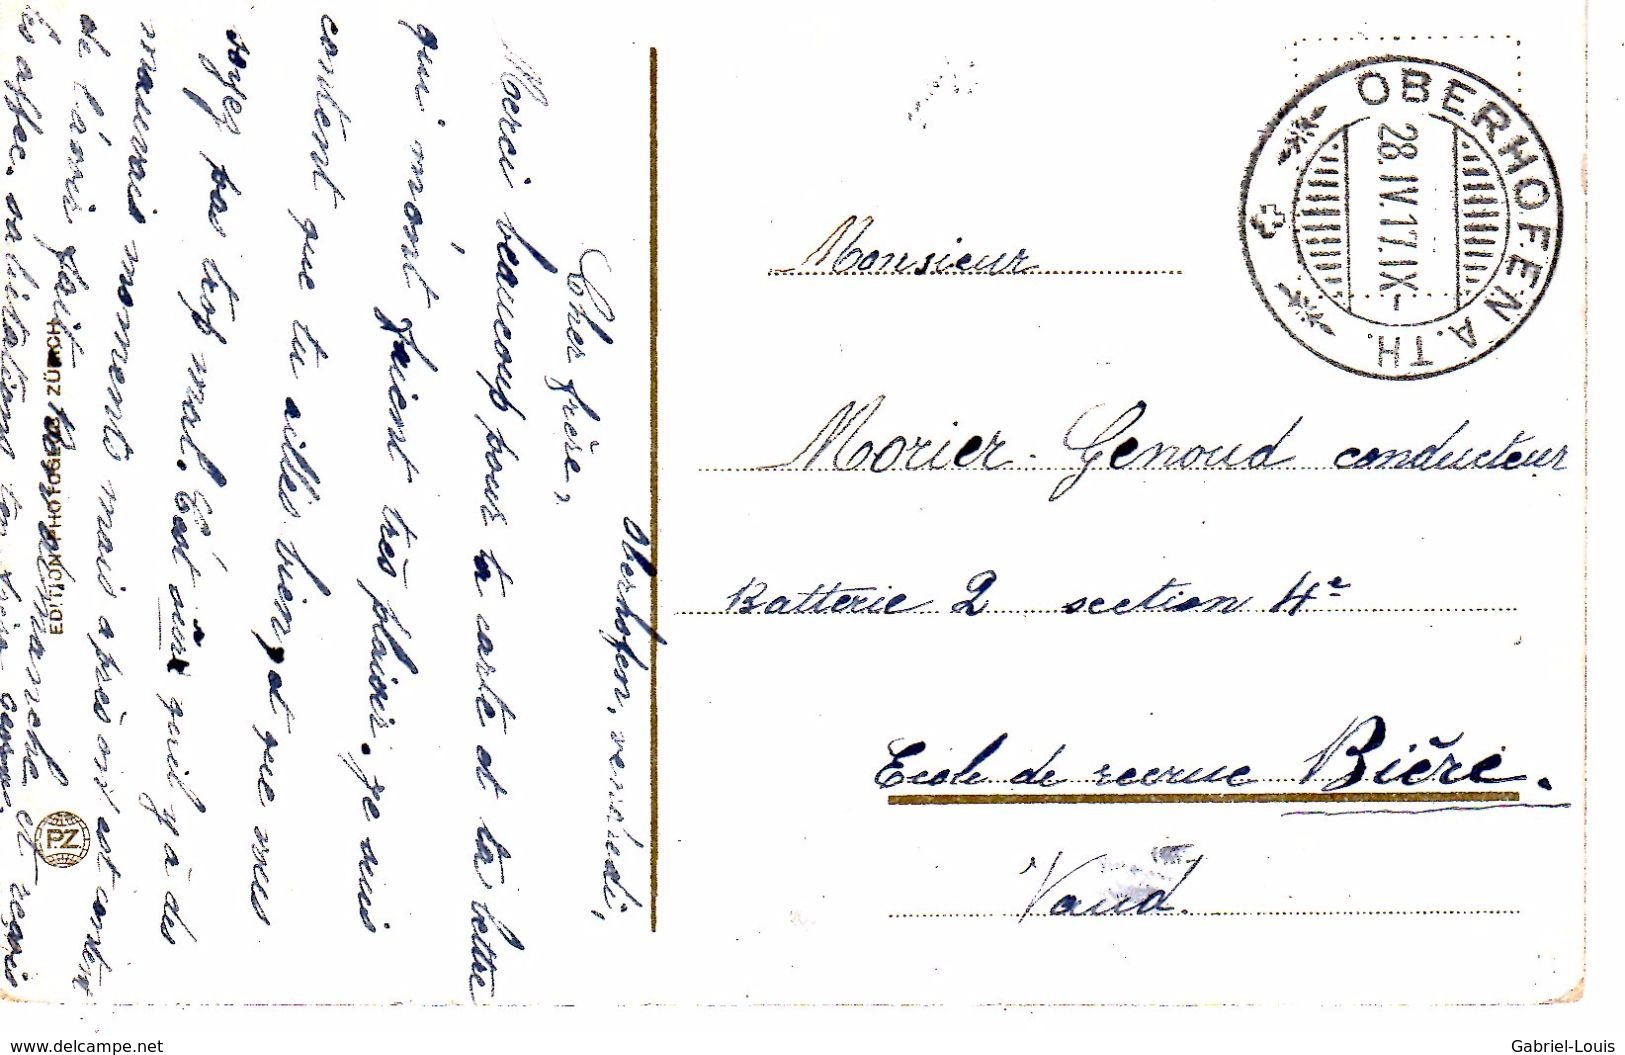 Oberhofen, vendredi,
Cher frère,
Merci beaucoup pour ta carte et ta lettre
qui m'ont fait très plaisir. Je suis
content que tu ailles bien, et que vous
soyez pas trop mal. C'est sûr qu'il y a des
mauvais moments mais après on est content
de l'avoir fait.
dimanche et reçois
les affec. salutations ton frère
EDITION PHOTOGLOB ZÜRICH
PZ
OBERHOFEN A. TH.
28.IV.17.IX-
Monsieur
Morier-Genoud conducteur
Batterie 2 section 4e
Ecole de recrue Bière.
Vaud.
www.delcampe.net
Gabriel-Louis